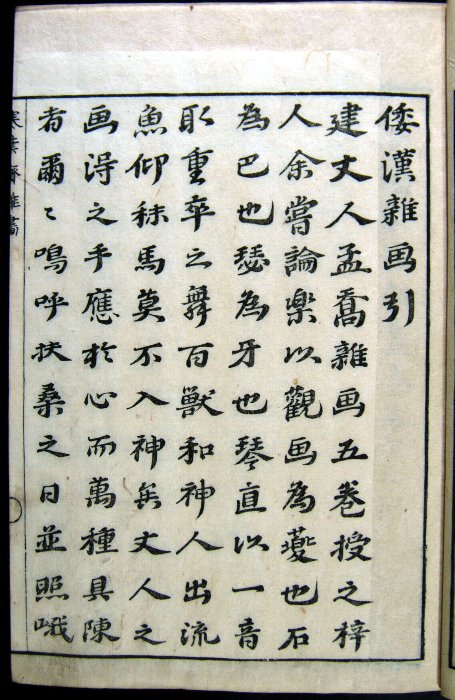 倭漢雜画引
建丈人孟喬雜画五巻授之梓
人余嘗論楽以觀画為夔也石
為巴也瑟為牙也琴直以一音
耴重卒之舞百獣和神人出流
魚仰秣馬莫不入神矣丈人之
画淂之手應於心而萬種具陳
者爾〻鳴呼扶桑之日並照峨